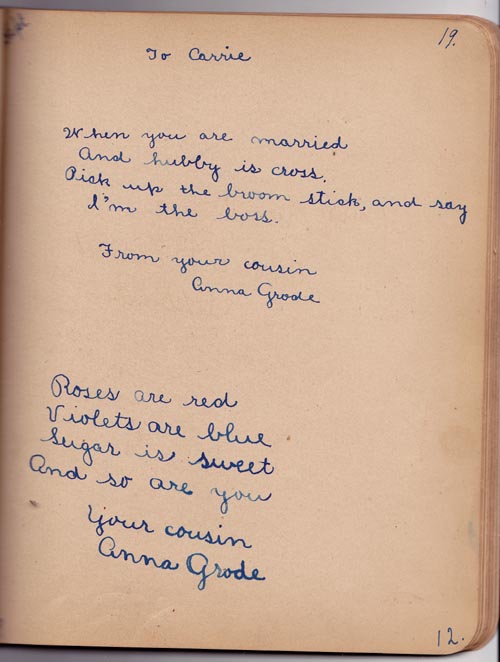 19.
To Carrie
When you are married
And hubby is cross.
Pick up the broom stick, and say
I'm the boss.
From your cousin
Anna Grode
Roses are red
Violets are blue
Sugar is sweet
And so are you
Your cousin
Anna Grode
12.